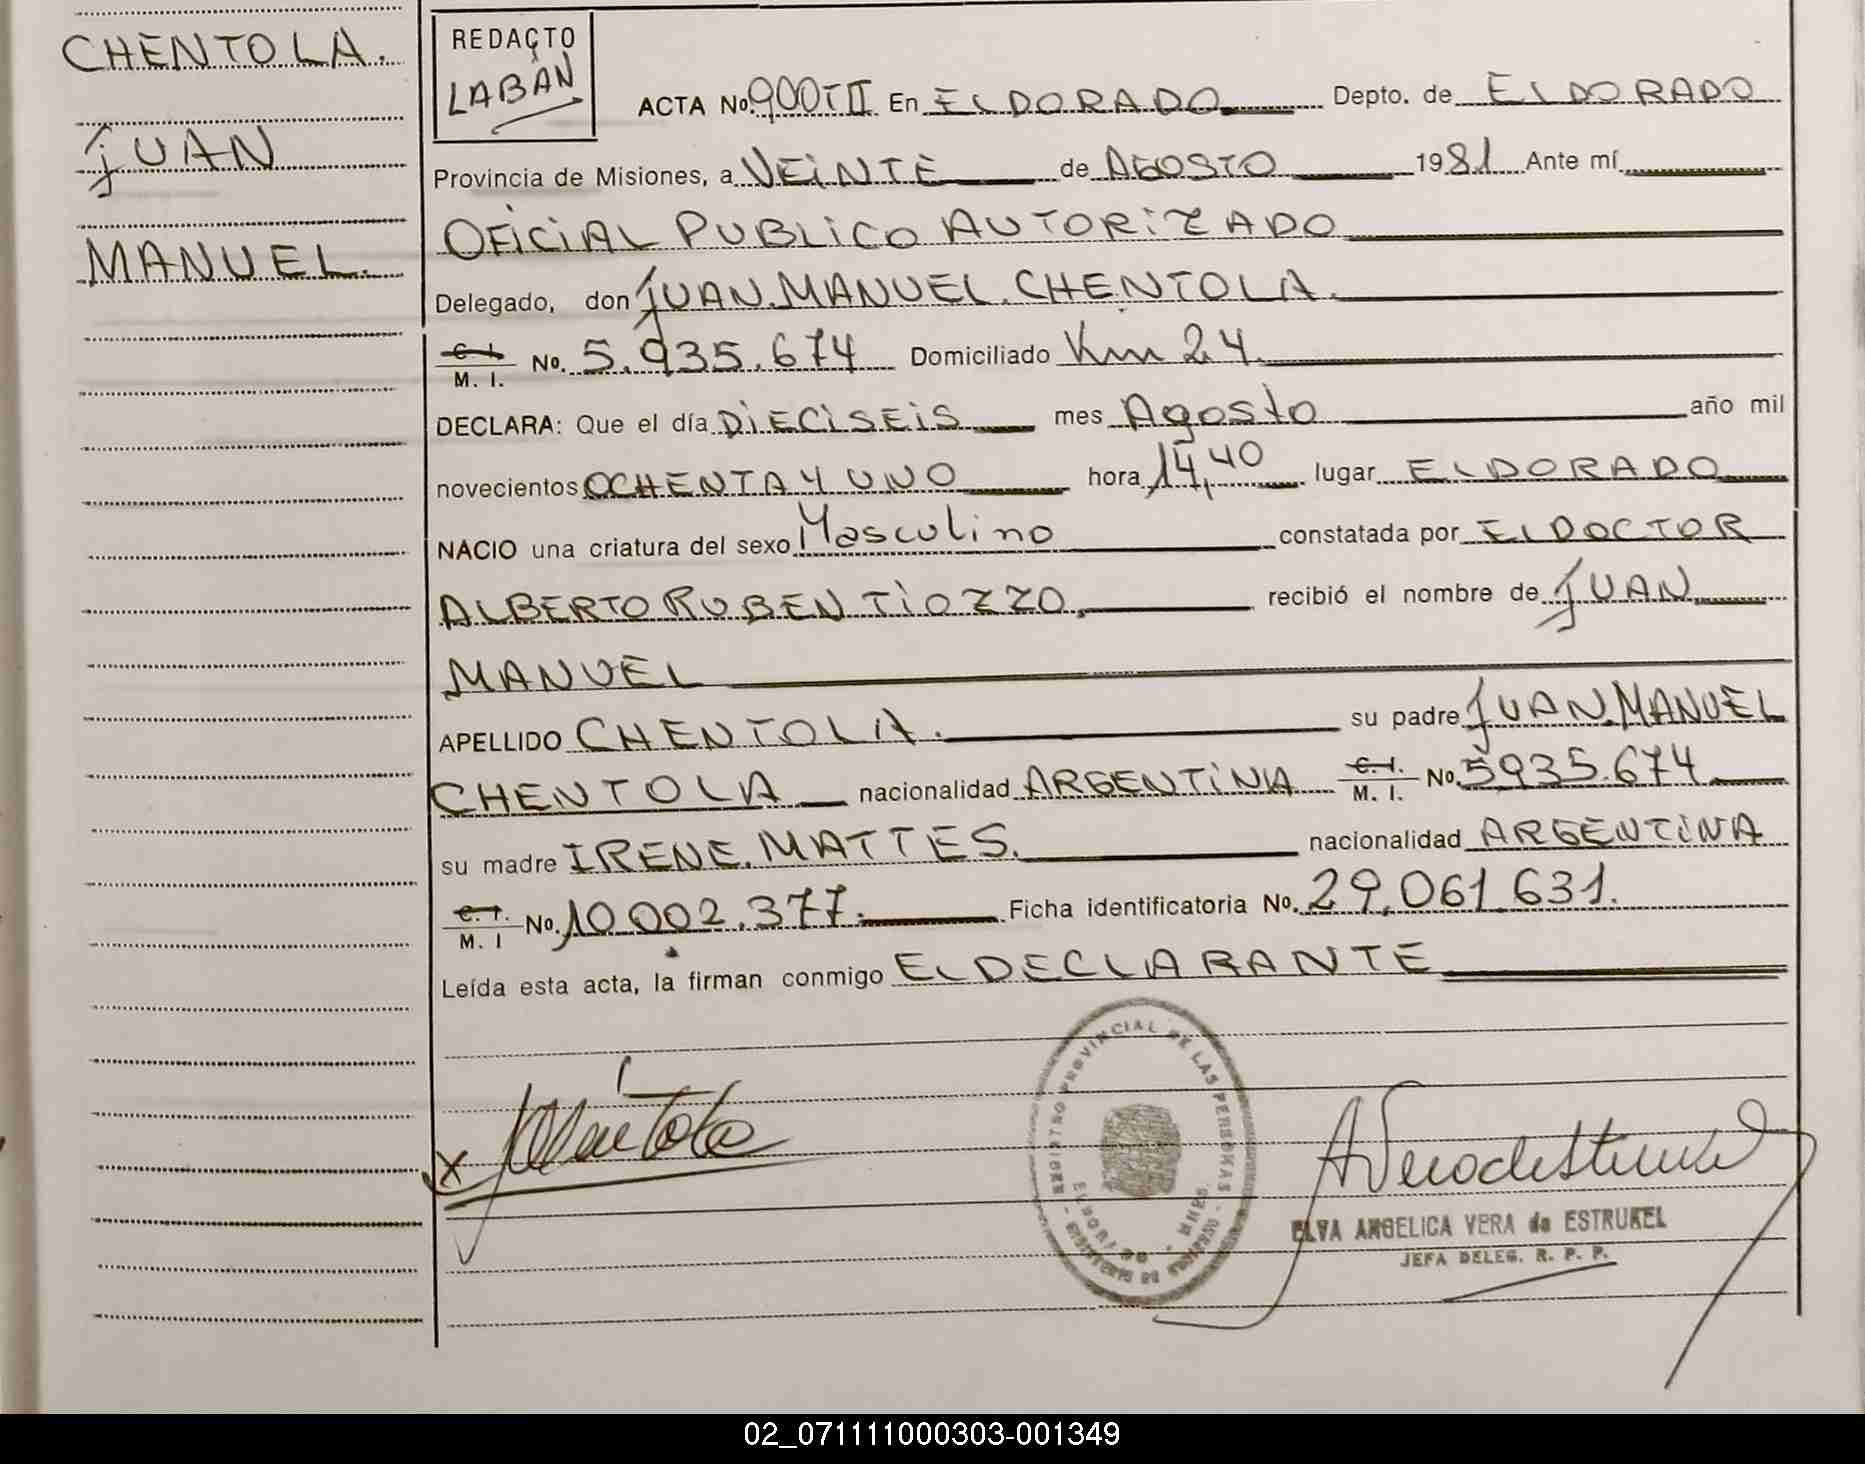 CHENTOLA.
JUAN
MANUEL.
REDACTO
LABAN
ACTA No. 900 T II En ELDORADO Depto. de ELDORADO
Provincia de Misiones, a VEINTE de AGOSTO 1981 Ante mí
OFICIAL PUBLICO AUTORIZADO
Delegado, don JUAN MANUEL CHENTOLA.
C. I.
M. I. No. 5.935.674 Domiciliado Km 24
DECLARA: Que el día DIECISEIS mes Agosto año mil
novecientos OCHENTA Y UNO hora 14,40 lugar ELDORADO
NACIO una criatura del sexo Masculino constatada por EL DOCTOR
ALBERTO RUBEN TIOZZO, recibió el nombre de JUAN
MANUEL
APELLIDO CHENTOLA. su padre JUAN MANUEL
CHENTOLA nacionalidad ARGENTINA C. I. M. I. No. 5935.674
su madre IRENE MATTES. nacionalidad ARGENTINA
C. I. M. I No. 10.002.377. Ficha identificatoria No. 29,061 631.
Leída esta acta, la firman conmigo EL DECLARANTE
REGISTRO PROVINCIAL DE LAS PERSONAS
ELVA ANGELICA VERA de ESTRUKEL
JEFA DELEG. R. P. P.
02_071111000303-001349